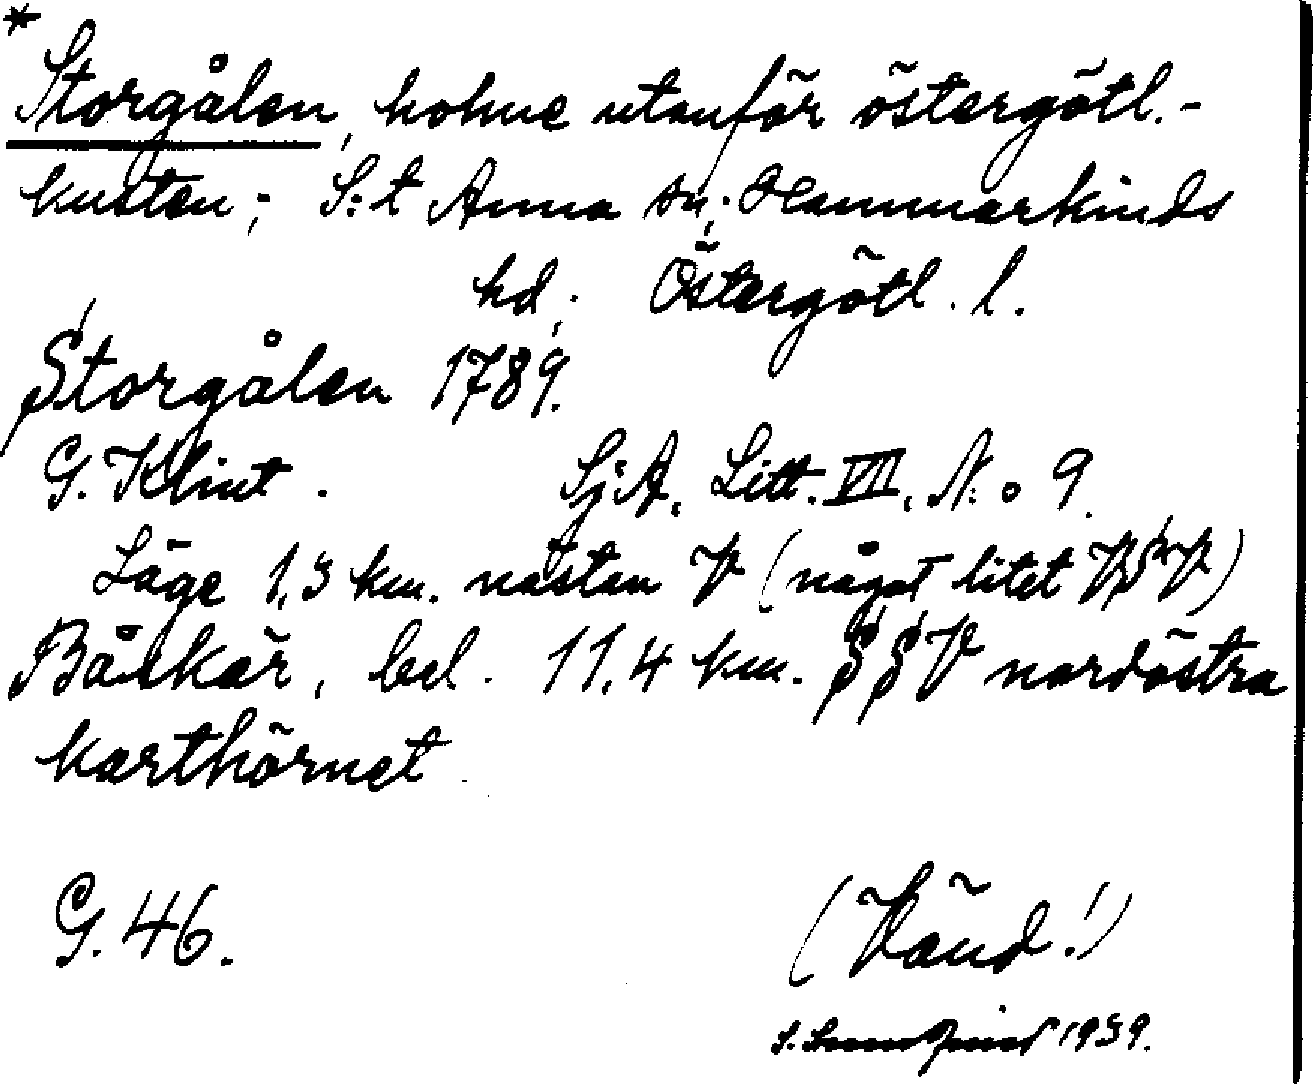 *
Storgålen, holme utanför östergötl.-
kusten; S:t Anna sn; Hammarkinds
hd; Östergötl. l.
Storgålen 1789.
G. Klint. SjA, Litt. VII, N:o 9.
Läge 1,3 km. nästan V (något litet VSV)
Båkskär, bel. 11,4 km. SSV nordöstra
karthörnet.
G. 46.
(Vänd!)
S. 1939.